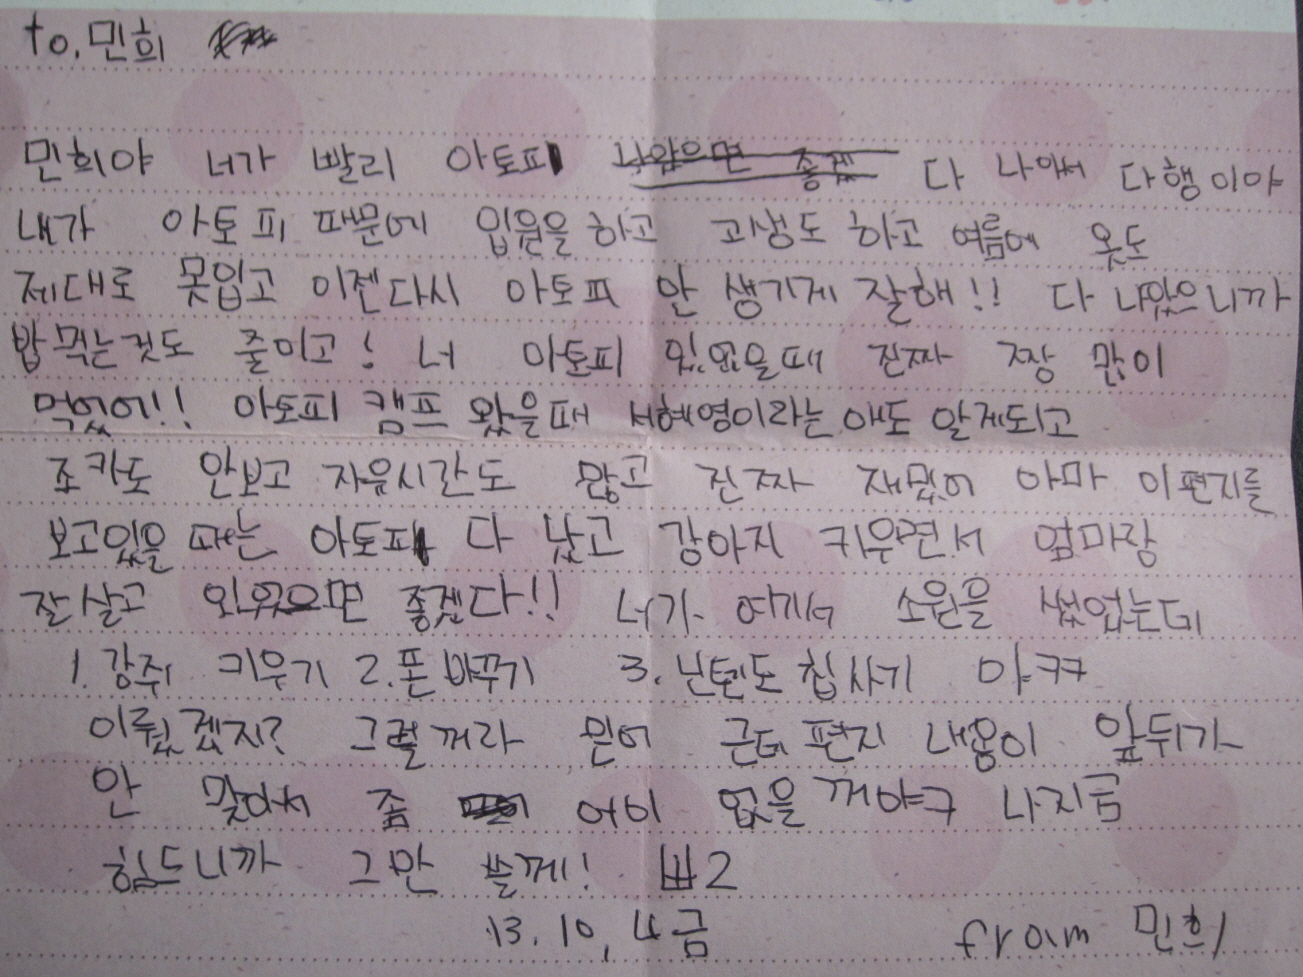 to. 민희
민희야 너가 빨리 아토피 나았으면 좋겠 다 나아서 다행이야
내가 아토피 때문에 입원을 하고 고생도 하고 여름에 옷도
제대로 못입고 이젠다시 아토피 안 생기게 잘해!! 다 나았으니까
밥 먹는것도 줄이고! 너 아토피 있었을때 진짜 짱 많이
먹었어!! 아토피 캠프 왔을때 서혜영이라는 애도 알게되고
조카도 안보고 자유시간도 많고 진짜 재밌어 아마 이편지를
보고있을 때는 아토피 다 낳고 강아지 키우면서 엄마랑
잘살고 있었으면 좋겠다!! 너가 여기서 소원을 썼었는데
1. 강쥐 키우기 2. 폰 바꾸기 3. 닌텐도 칩사기 야ㅋㅋ
이뤘겠지? 그럴꺼라 믿어 근데 편지 내용이 앞뒤가
안 맞아서 좀 어이 없을 꺼야ㅋ 나지금
힘드니까 그만 쓸께! ㅃ2
13. 10, 4 금 from 민희